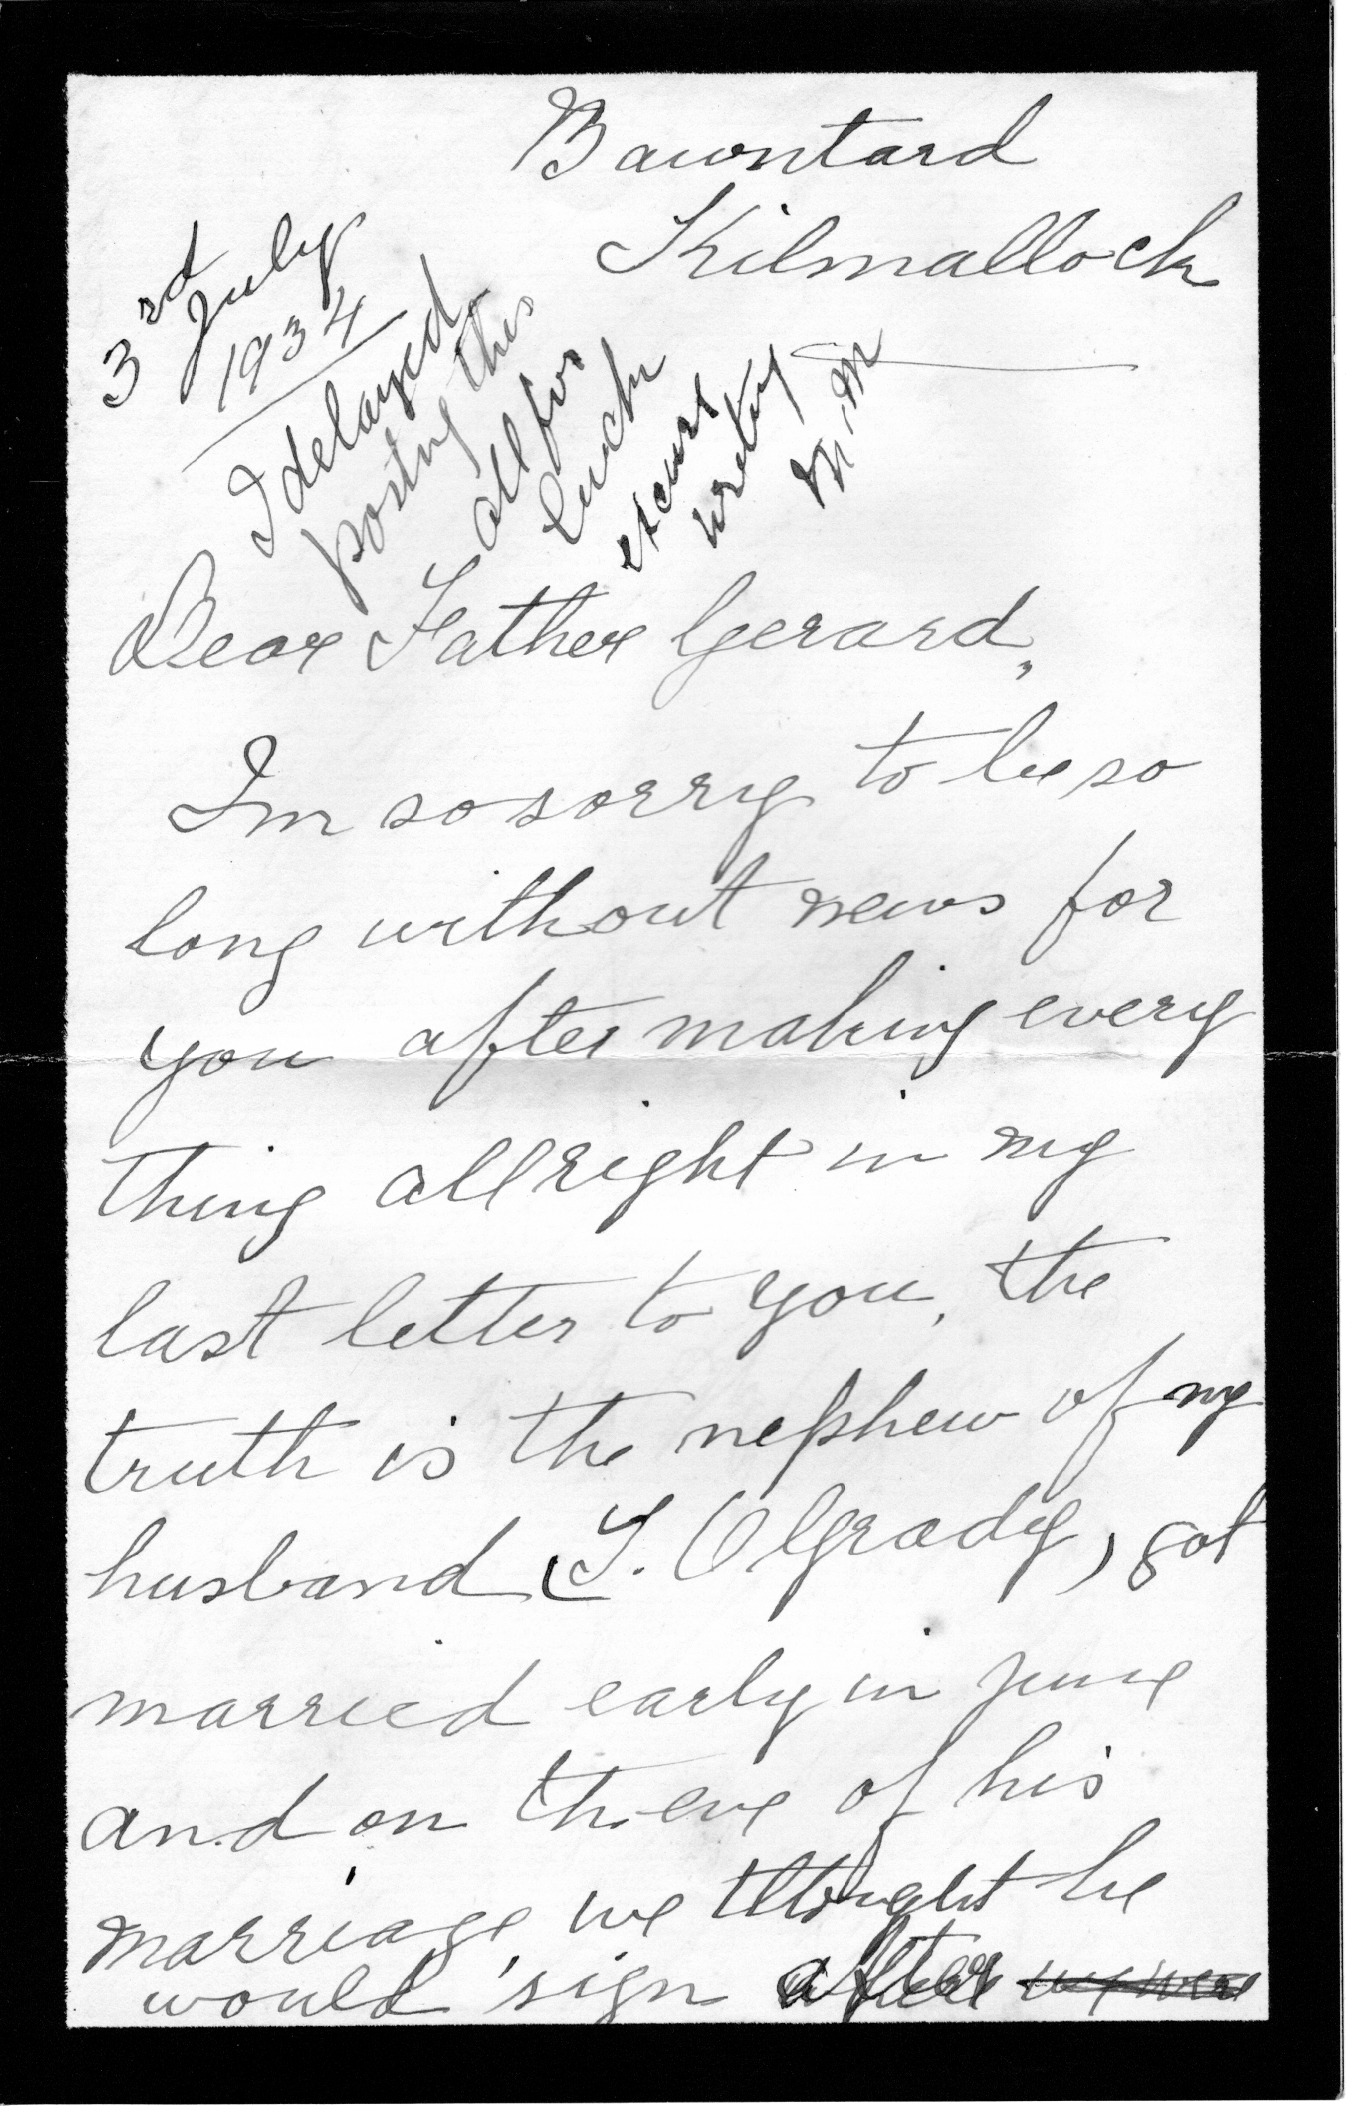 Bawntard
Kilmallock
3rd July
1934
I delayed
posting this
all for
luck
excuse
writing
M. M
Dear Father Gerard,
Im so sorry to be so
long without news for
you after making every
thing allright in my
last letter to you, the
truth is the nephew of my
husband (T. O Grady) got
married early in June
and on the eve of his
marriage, we thought he
would sign after we were